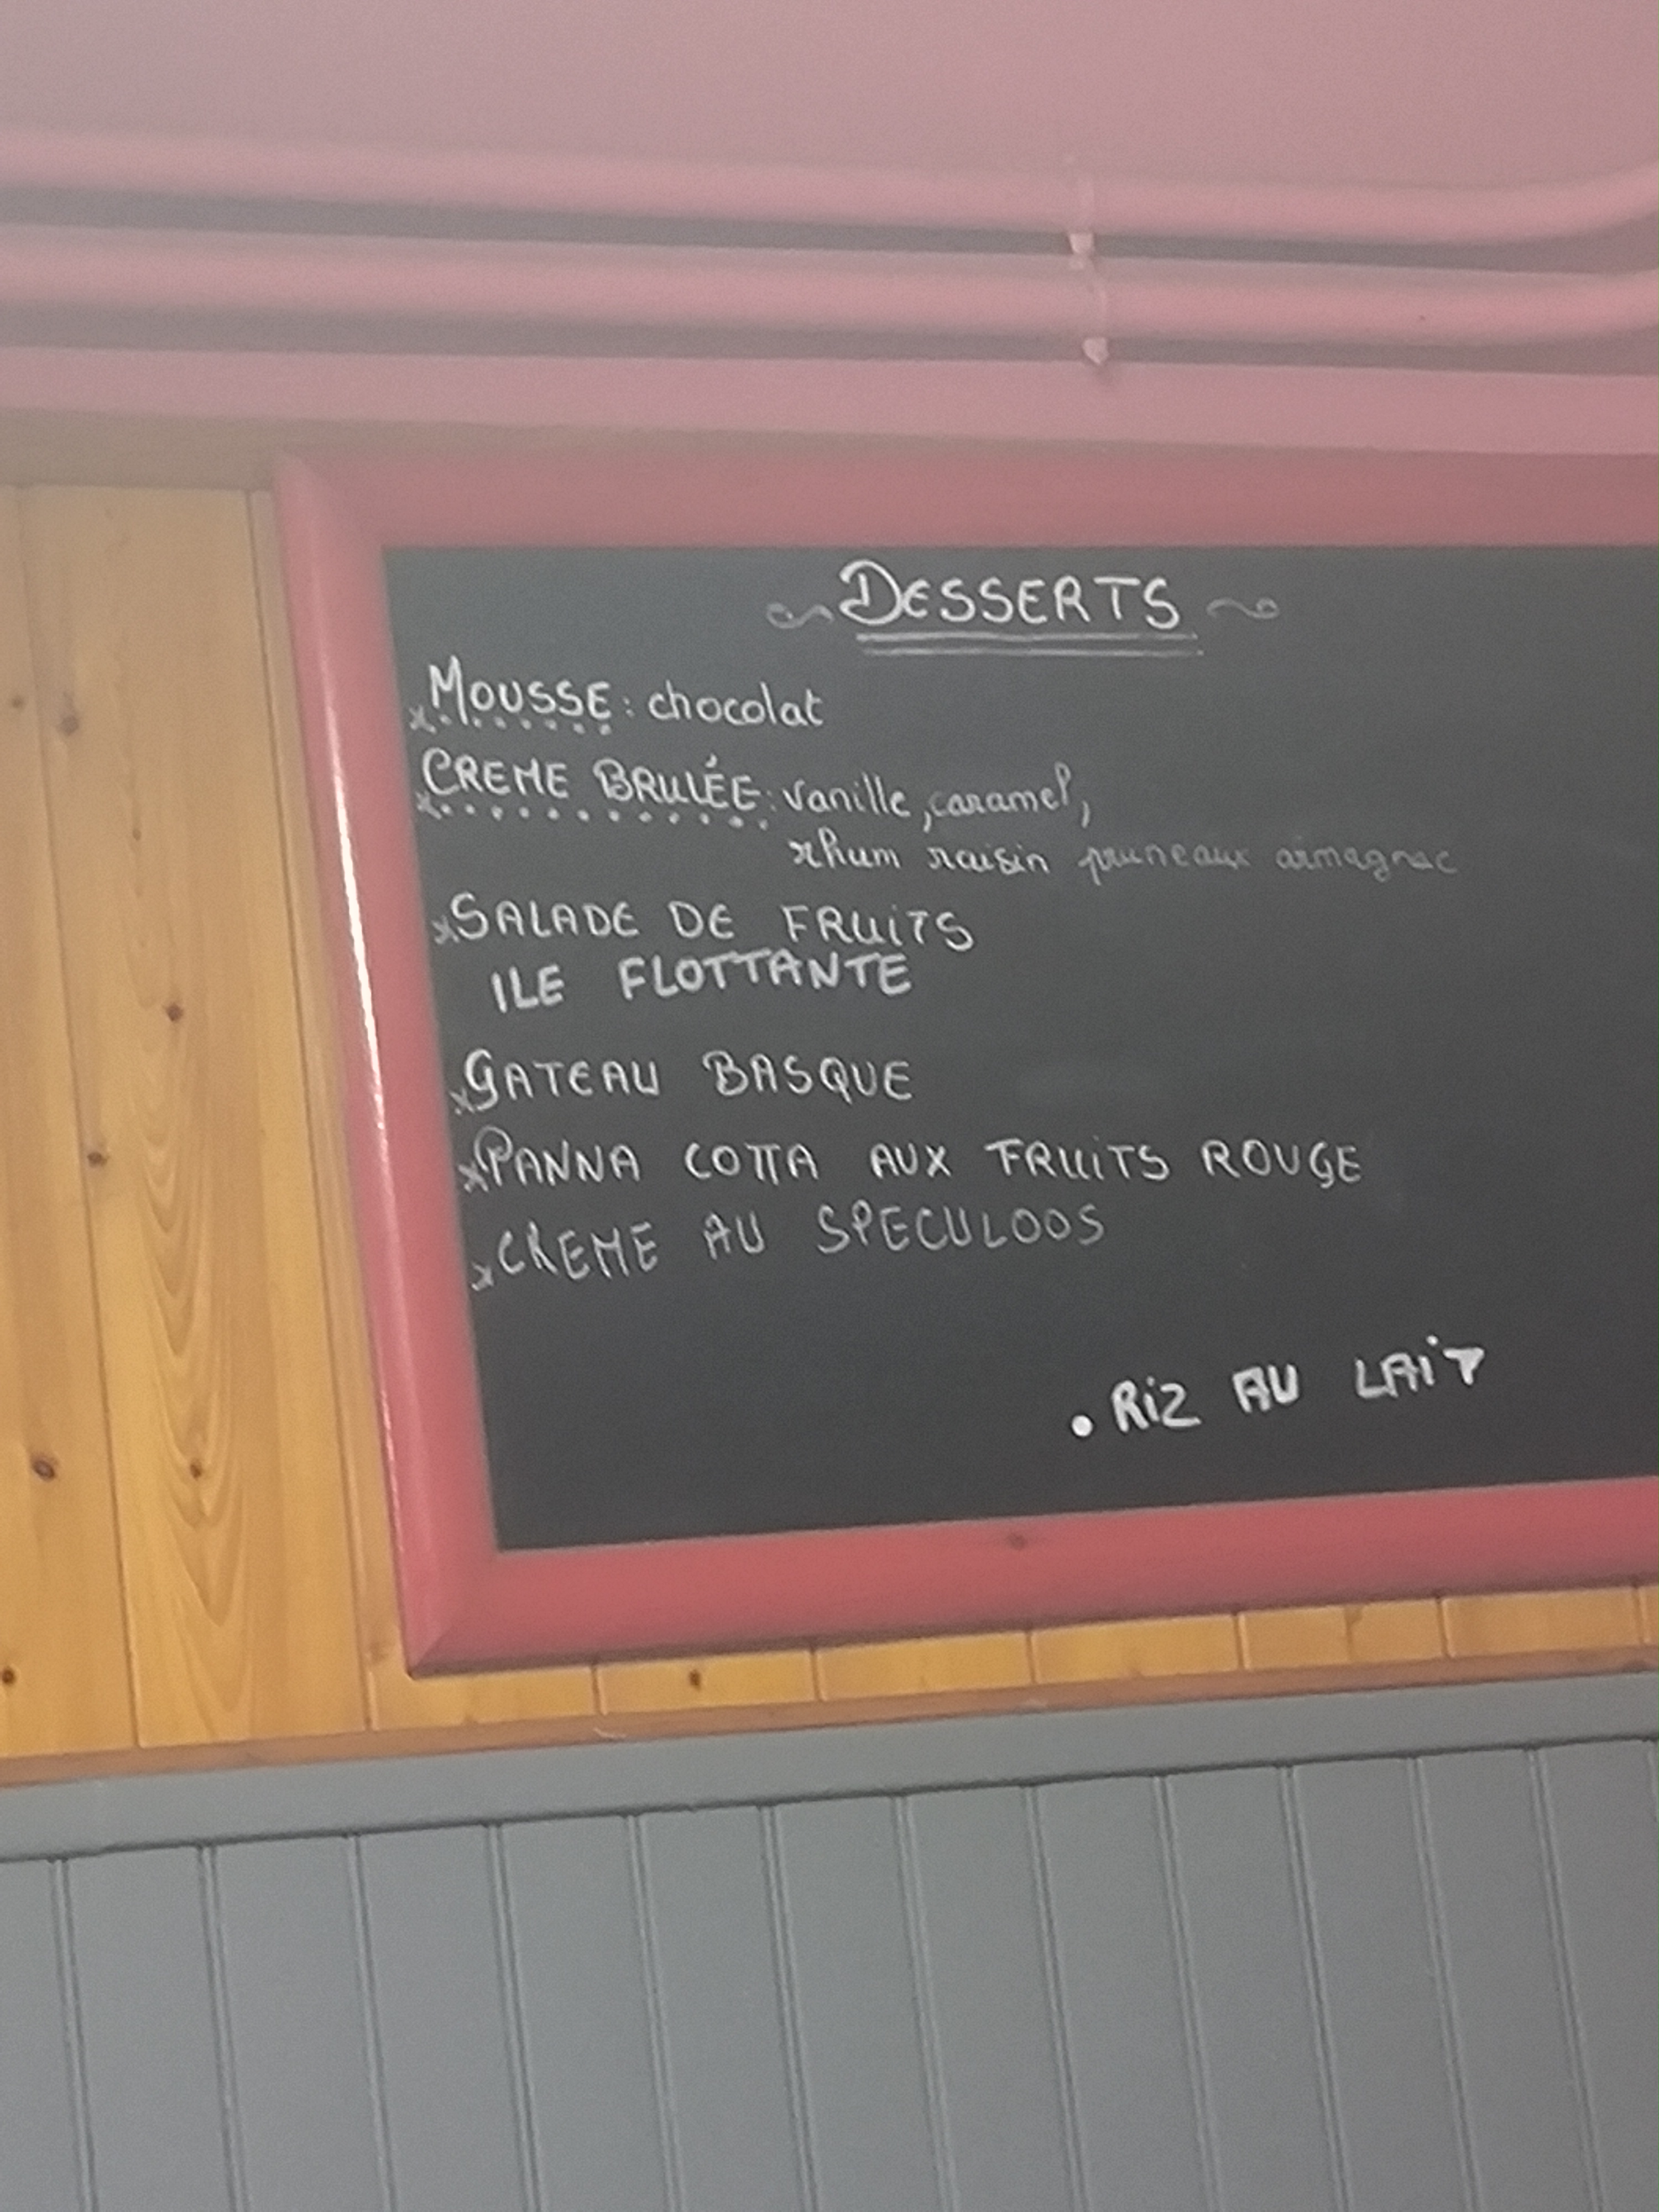 DESSERTS
MOUSSE : chocolat
CREME BRULÉE : vanille, caramel,
rhum raisin pruneaux armagnac
SALADE DE FRUITS
ILE FLOTTANTE
GATEAU BASQUE
PANNA COTTA AUX FRUITS ROUGE
CREME AU SPECULOOS
• RIZ AU LAIT